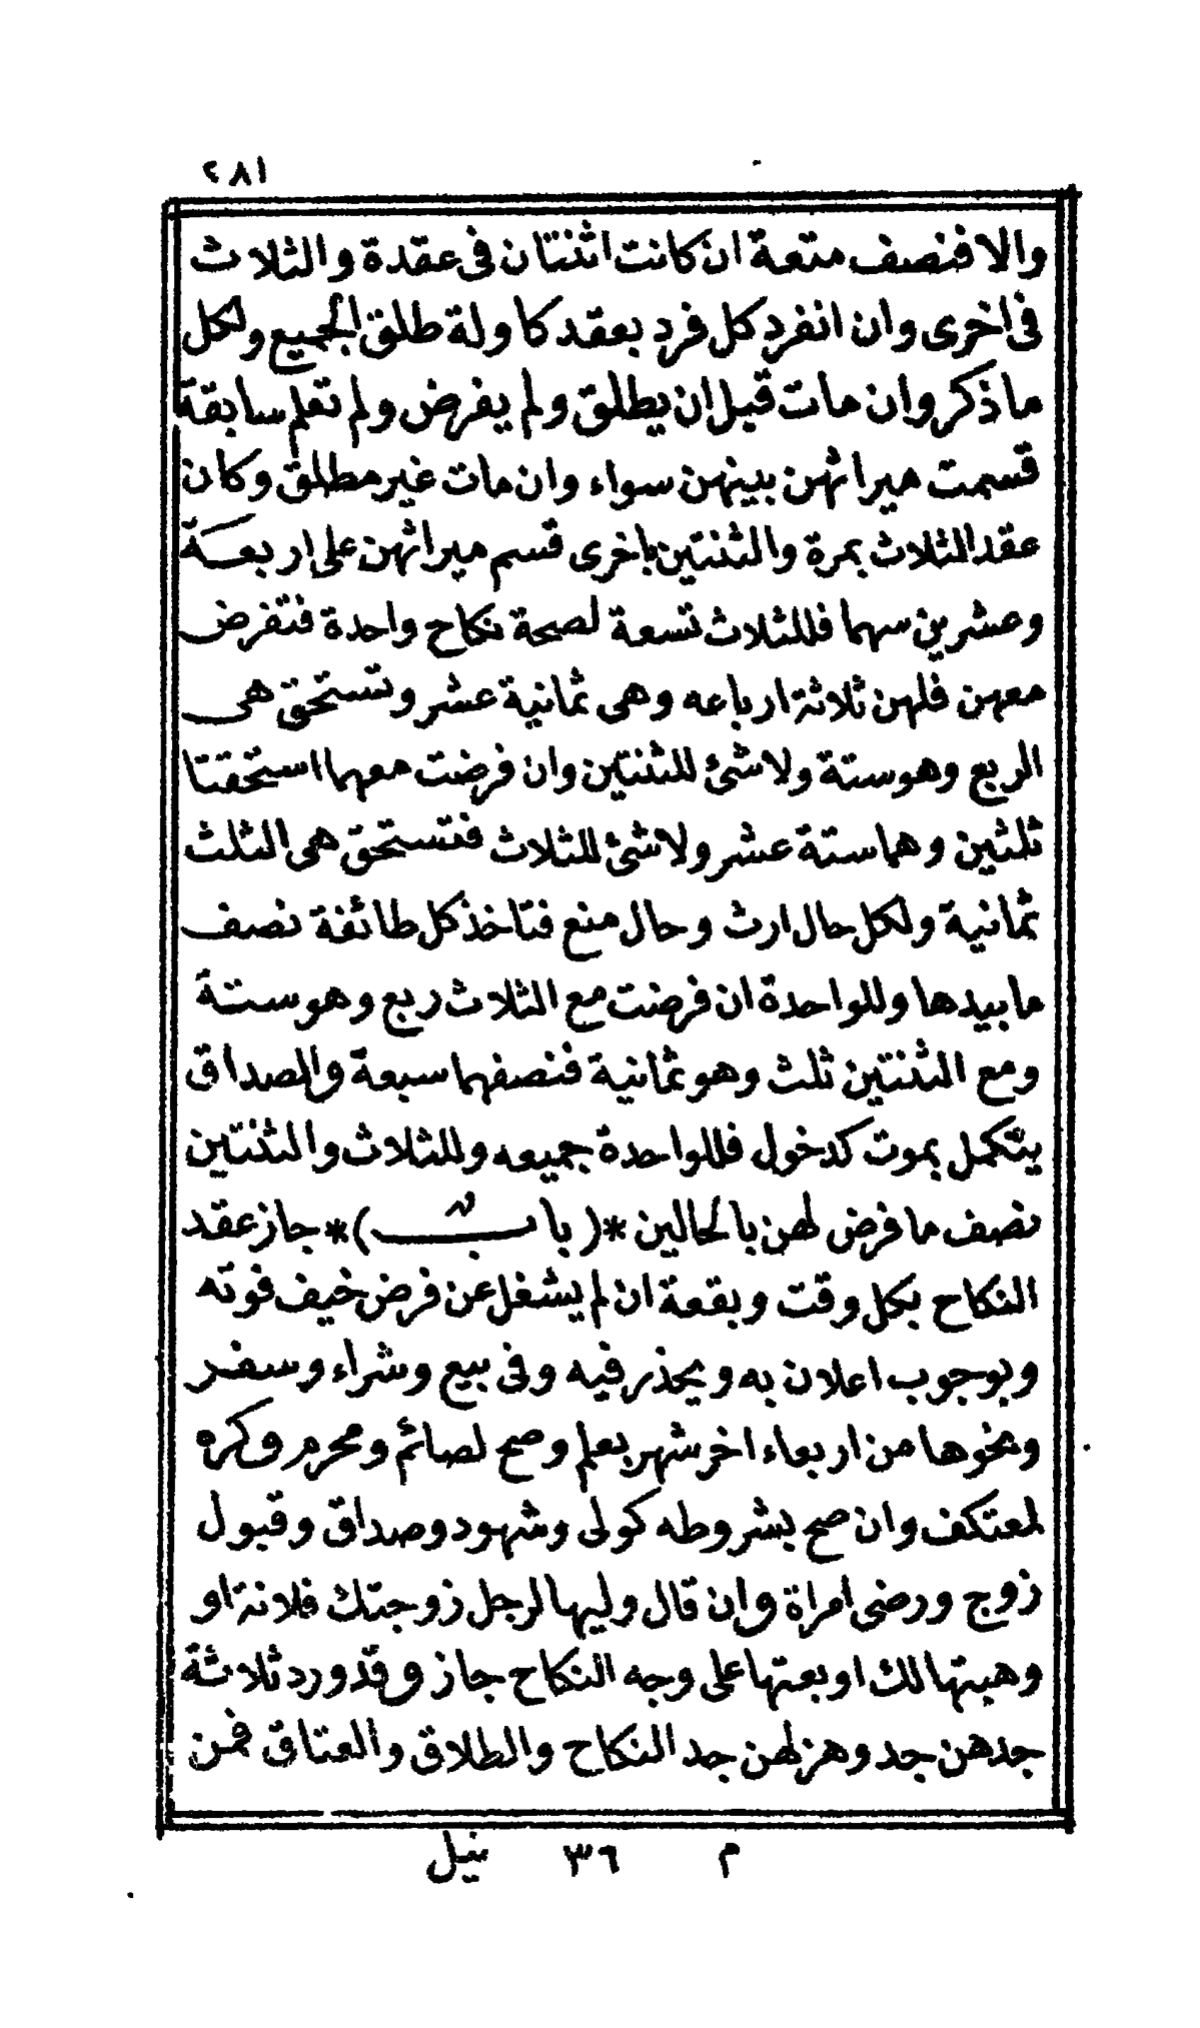 ٢٨١
والا فنصف متعة ان كانت اثنتان فى عقدة والثلاث
فى اخرى وان انفرد كل فرد بعقد كاولة طلق الجميع ولكل
ما ذكر وان مات قبل ان يطلق ولم يفرض ولم تعلم سابقة
قسمت ميراثهن بينهن سواء وان مات غير مطلق وكان
عقد الثلاث بمرة والثنتين باخرى قسم ميراثهن على اربعة
وعشرين سهما فللثلاث تسعة لصحة نكاح واحدة فتفرض
معهن فلهن ثلاثة ارباعه وهى ثمانية عشر وتستحق هى
الربع وهو ستة ولا شئ للثنتين وان فرضت معهما استحقتا
ثلثين وهما ستة عشر ولا شئ للثلاث فتستحق هى الثلث
ثمانية ولكل حال ارث وحال منع فتاخذ كل طائفة نصف
ما بيدها وللواحدة ان فرضت مع الثلاث ربع وهو ستة
ومع الثنتين ثلث وهو ثمانية فنصفهما سبعة والصداق
يتكمل بموت كدخول فللواحدة جميعه وللثلاث والثنتين
نصف ما فرض لهن بالحالين *( باب )* جاز عقد
النكاح بكل وقت وبقعة ان لم يشغل عن فرض خيف فوته
وبوجوب اعلان به ويحذر فيه وفى بيع وشراء وسفر
ونحوها من اربعاء اخر شهر بعلم وصح لصائم ومحرم وكره
لمعتكف وان صح بشروطه كولى وشهود وصداق وقبول
زوج ورضى امراة وان قال وليها لرجل زوجتك فلانة او
وهبتها لك او بعتها على وجه النكاح جاز وقد ورد ثلاثة
جدهن جد وهزلهن جد النكاح والطلاق والعتاق فمن
م ٣٦ نيل